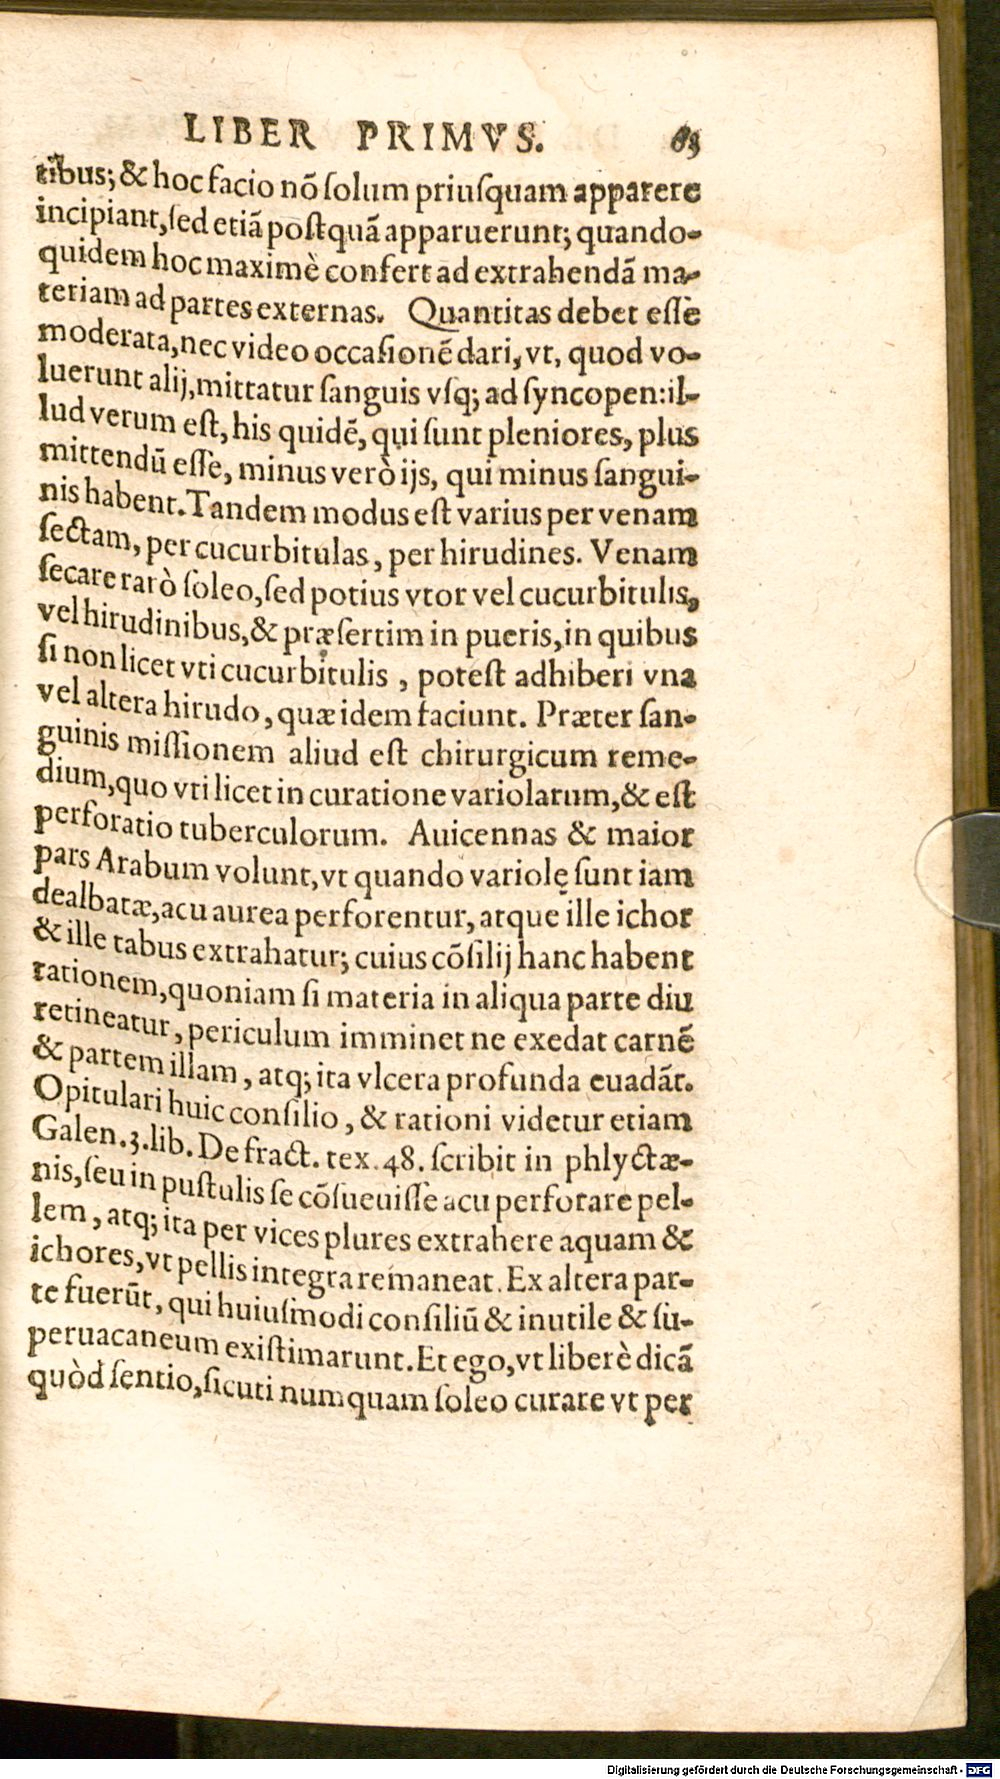 LIBER PRIMVS. 83
tibus; & hoc facio nõ ſolum priuſquam apparere
incipiant, ſed etiã poſtquã apparuerunt; quando-
quidem hoc maximè confert ad extrahendã ma-
teriam ad partes externas. Quantitas debet eſſe
moderata, nec video occaſionẽ dari, vt, quod vo-
luerunt alij, mittatur ſanguis vſq; ad ſyncopen: il-
lud verum eſt, his quidẽ, qui ſunt pleniores, plus
mittendũ eſſe, minus verò ijs, qui minus ſangui-
nis habent. Tandem modus eſt varius per venam
ſectam, per cucurbitulas, per hirudines. Venam
ſecare rarò ſoleo, ſed potius vtor vel cucurbitulis,
vel hirudinibus, & præſertim in pueris, in quibus
ſi non licet vti cucurbitulis, poteſt adhiberi vna
vel altera hirudo, quæ idem faciunt. Præter ſan-
guinis miſſionem aliud eſt chirurgicum reme-
dium, quo vti licet in curatione variolarum, & eſt
perforatio tuberculorum. Auicennas & maior
pars Arabum volunt, vt quando variolę ſunt iam
dealbatæ, acu aurea perforentur, atque ille ichor
& ille tabus extrahatur; cuius cõſilij hanc habent
rationem, quoniam ſi materia in aliqua parte diu
retineatur, periculum imminet ne exedat carnẽ
& partem illam, atq; ita vlcera profunda euadãt.
Opitulari huic conſilio, & rationi videtur etiam
Galen. 3. lib. De fract. tex. 48. ſcribit in phlyctæ-
nis, ſeu in puſtulis ſe cõſueuiſſe acu perforare pel-
lem, atq; ita per vices plures extrahere aquam &
ichores, vt pellis integra remaneat. Ex altera par-
te fuerũt, qui huiuſmodi conſiliũ & inutile & ſu-
peruacaneum exiſtimarunt. Et ego, vt liberè dicã
quòd ſentio, ſicuti numquam ſoleo curare vt per
Digitalisierung gefördert durch die Deutsche Forschungsgemeinschaft - DFG